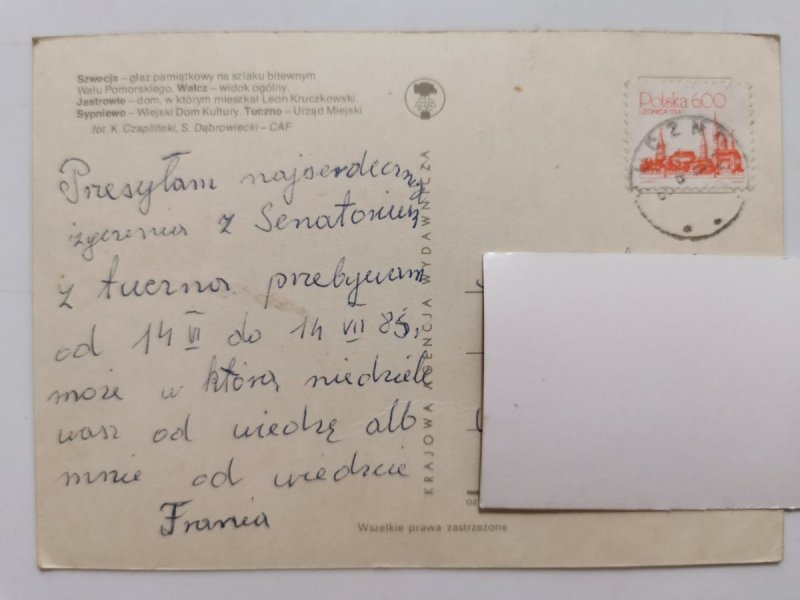 Szwecja – głaz pamiątkowy na szlaku bitewnym
Wału Pomorskiego. Wałcz – widok ogólny.
Jastrowie – dom, w którym mieszkał Leon Kruczkowski.
Sypniewo – Wiejski Dom Kultury. Tuczno – Urząd Miejski
fot. K. Czapliński, S. Dąbrowiecki – CAF
Przesyłam najserdeczn
życzenia z Senatorium
z tuczna przebywam
od 14 VI do 14 VII 85,
może w którą niedziele
wasz od wiedzę alb
mnie od wiedzcie
Frania
KRAJOWA AGENCJA WYDAWNICZA
Wszelkie prawa zastrzeżone
Polska 600
LEGNICA 1744